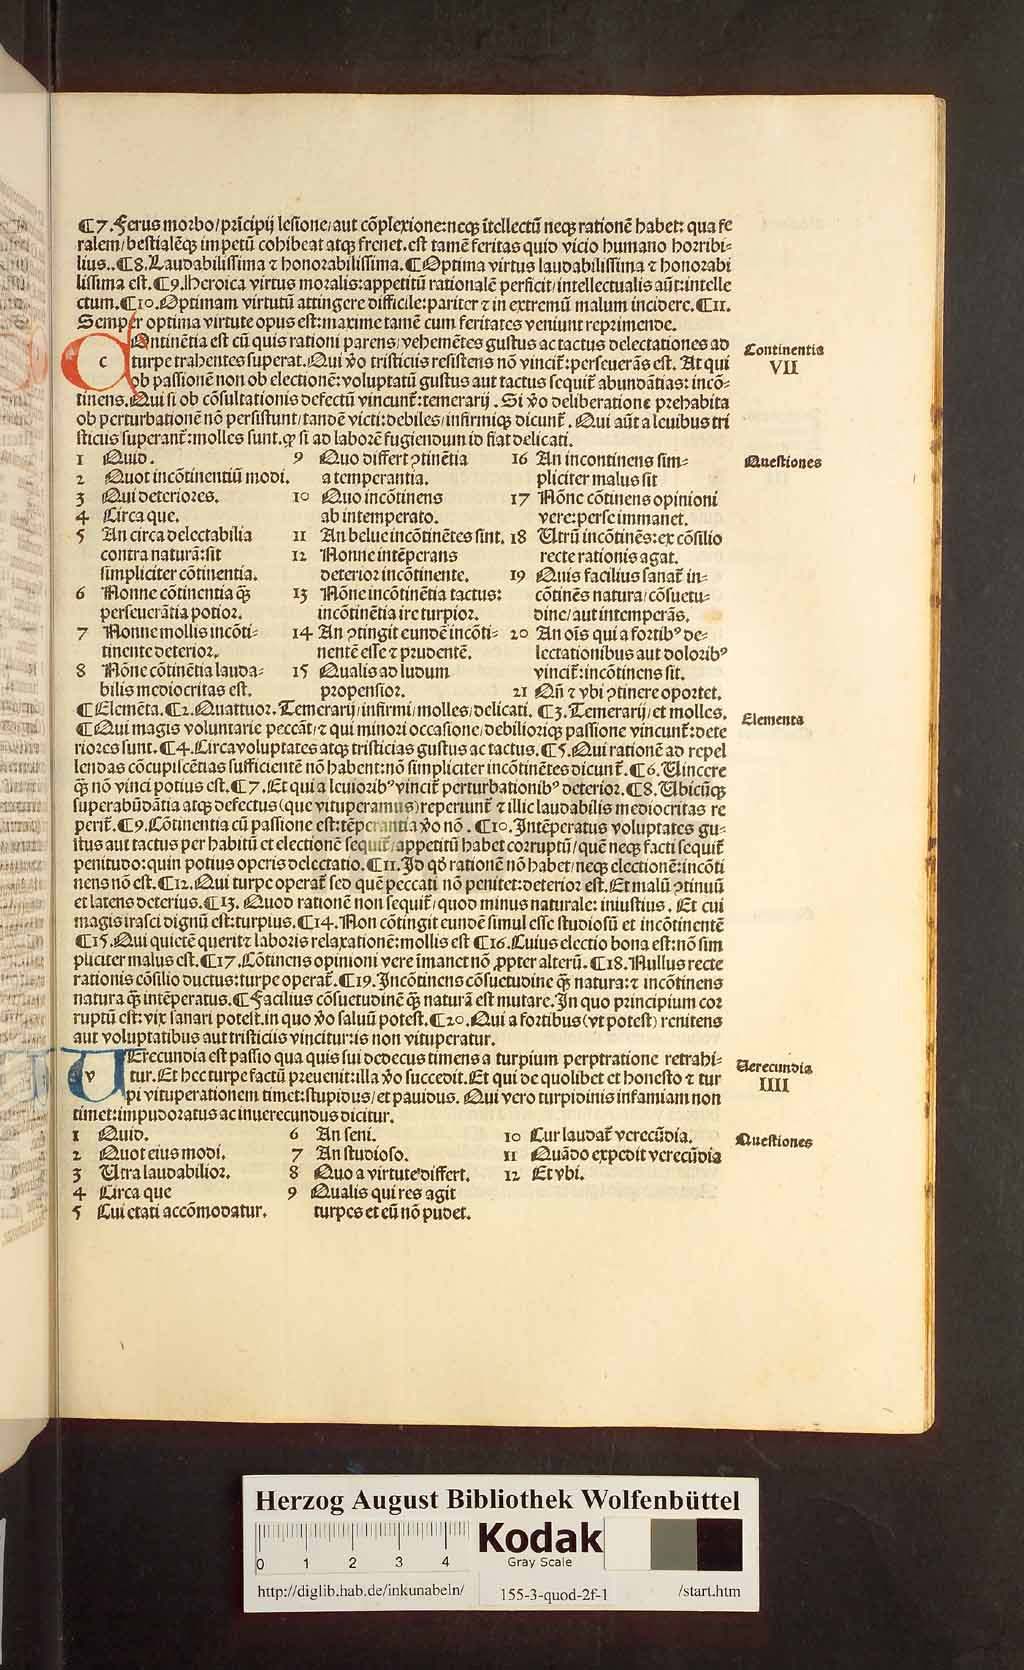 ¶7. Ferus morbo/ prīcipij lesione/ aut cōplexione: neqꝫ ītellectū neqꝫ rationē habet: qua fe
ralem/ bestialēqꝫ impetū cohibeat atqꝫ frenet. est tamē feritas quid vicio humano horribi-
lius.. ¶8. Laudabilissima ⁊ honorabilissima. ¶Optima virtus laudabilissima ⁊ honorabi
lissima est. ¶9. Heroica virtus moralis: appetitū rationalē perficit/ intellectualis aūt: intelle
ctum. ¶10. Optimam virtutū attingere difficile: pariter ⁊ in extremū malum incidere. ¶11.
Semper optima virtute opus est: maxime tamē cum feritates veniunt reprimende.
c Ontinētia est cū quis rationi parens/ vehemētes gustus ac tactus delectationes ad
turpe trahentes superat. Qui v̄o tristiciis resistens nō vincit̄: perseuerās est. At qui
ob passionē non ob electionē: voluptatū gustus aut tactus sequit̄ abundātias: incō-
tinens. Qui si ob cōsultationis defectū vincunt̄: temerarij. Si v̄o deliberatione prehabita
ob perturbationē nō persistunt/ tandē victi: debiles/ infirmiqꝫ dicunt̄. Qui aūt a leuibus tri
sticiis superant̄: molles sunt. qꝙ si ad laborē fugiendum id fiat delicati.
Continentia
VII
Questiones
1 Quid.
2 Quot incōtinentiū modi.
3 Qui deteriores.
4 Circa que.
5 An circa delectabilia
contra naturā: sit
simpliciter cōtinentia.
6 Nonne cōtinentia qꝫ̄
perseuerātia potior.
7 Nonne mollis incōti-
tinente deterior.
8 Nōne cōtinētia lauda-
bilis mediocritas est.
9 Quo differt ꝯtinētia
a temperantia.
10 Quo incōtinens
ab intemperato.
11 An belue incōtinētes sint.
12 Nonne intēperans
deterior incōtinente.
13 Nōne incōtinētia tactus:
incōtinētia ire turpior.
14 An ꝯtingit eundē incōti-
nentē esse ⁊ prudentē.
15 Qualis ad ludum
propensior.
16 An incontinens sim-
pliciter malus sit
17 Nōne cōtinens opinioni
vere: perse immanet.
18 Utrū incōtinēs: ex cōsilio
recte rationis agat.
19 Quis facilius sanat̄ in-
cōtinēs natura/ cōsuetu-
dine/ aut intemperās.
20 An oīs qui a fortibꝰ de-
lectationibus aut doloribꝰ
vincit̄: incōtinens sit.
21 Qn̄ ⁊ vbi ꝯtinere oportet.
¶Elemēta. ¶2. Quattuor. Temerarij/ infirmi/ molles/ delicati. ¶3. Temerarij/ et molles.
¶Qui magis voluntarie peccāt/ ⁊ qui minori occasione/ debilioriqꝫ passione vincunt̄: dete
riores sunt. ¶4. Circa voluptates atqꝫ tristicias gustus ac tactus. ¶5. Qui rationē ad repel
lendas cōcupiscētias sufficientē nō habent: nō simpliciter incōtinētes dicunt̄. ¶6. Uincere
qꝫ̄ nō vinci potius est. ¶7. Et qui a leuioribꝰ vincit̄ perturbationibꝰ deterior. ¶8. Ubicūqꝫ
superabūdātia atqꝫ defectus (que vituperamus) reperiunt̄ ⁊ illic laudabilis mediocritas re
perit̄. ¶9. Cōtinentia cū passione est: tēperantia v̄o nō. ¶10. Intēperatus voluptates gu-
stus aut tactus per habitū et electionē sequit̄/ appetitū habet corruptū/ quē neqꝫ facti sequit̄
penitudo: quin potius operis delectatio. ¶11. Id qd̄ rationē nō habet/ neqꝫ electionē: incōti
nens nō est. ¶12. Qui turpe operat̄ sed quē peccati nō penitet: deterior est. Et malū ꝯtinuū
et latens deterius. ¶13. Quod rationē non sequit̄/ quod minus naturale: iniustius. Et cui
magis irasci dignū est: turpius. ¶14. Non cōtingit eundē simul esse studiosū et incōtinentē
¶15. Qui quietē querit ⁊ laboris relaxationē: mollis est ¶16. Cuius electio bona est: nō sim
pliciter malus est. ¶17. Cōtinens opinioni vere īmanet nō ꝓpter alterū. ¶18. Nullus recte
rationis cōsilio ductus: turpe operat̄. ¶19. Incōtinens cōsuetudine qꝫ̄ natura: ⁊ incōtinens
natura qꝫ̄ intēperatus. ¶Facilius cōsuetudinē qꝫ̄ naturā est mutare. In quo principium cor
ruptū est: vix sanari potest. in quo v̄o saluū potest. ¶20. Qui a fortibus (vt potest) renitens
aut voluptatibus aut tristiciis vincitur: is non vituperatur.
Elementa
v Erecundia est passio qua quis sui dedecus timens a turpium perptratione retrahi-
tur. Et hec turpe factū preuenit: illa v̄o succedit. Et qui de quolibet et honesto ⁊ tur
pi vituperationem timet: stupidus/ et pauidus. Qui vero turpidinis infamiam non
timet: impudoratus ac inuerecundus dicitur.
Uerecundia
IIII
Questiones
1 Quid.
2 Quot eius modi.
3 Utra laudabilior.
4 Circa que
5 Cui etati accōmodatur.
6 An seni.
7 An studioso.
8 Quo a virtute differt.
9 Qualis qui res agit
turpes et eū nō pudet.
10 Cur laudat̄ verecūdia.
11 Quādo expedit verecūdia
12 Et vbi.
Herzog August Bibliothek Wolfenbüttel
0 1 2 3 4
Kodak
Gray Scale
http://diglib.hab.de/inkunabeln/
155-3-quod-2f-1
/start.htm